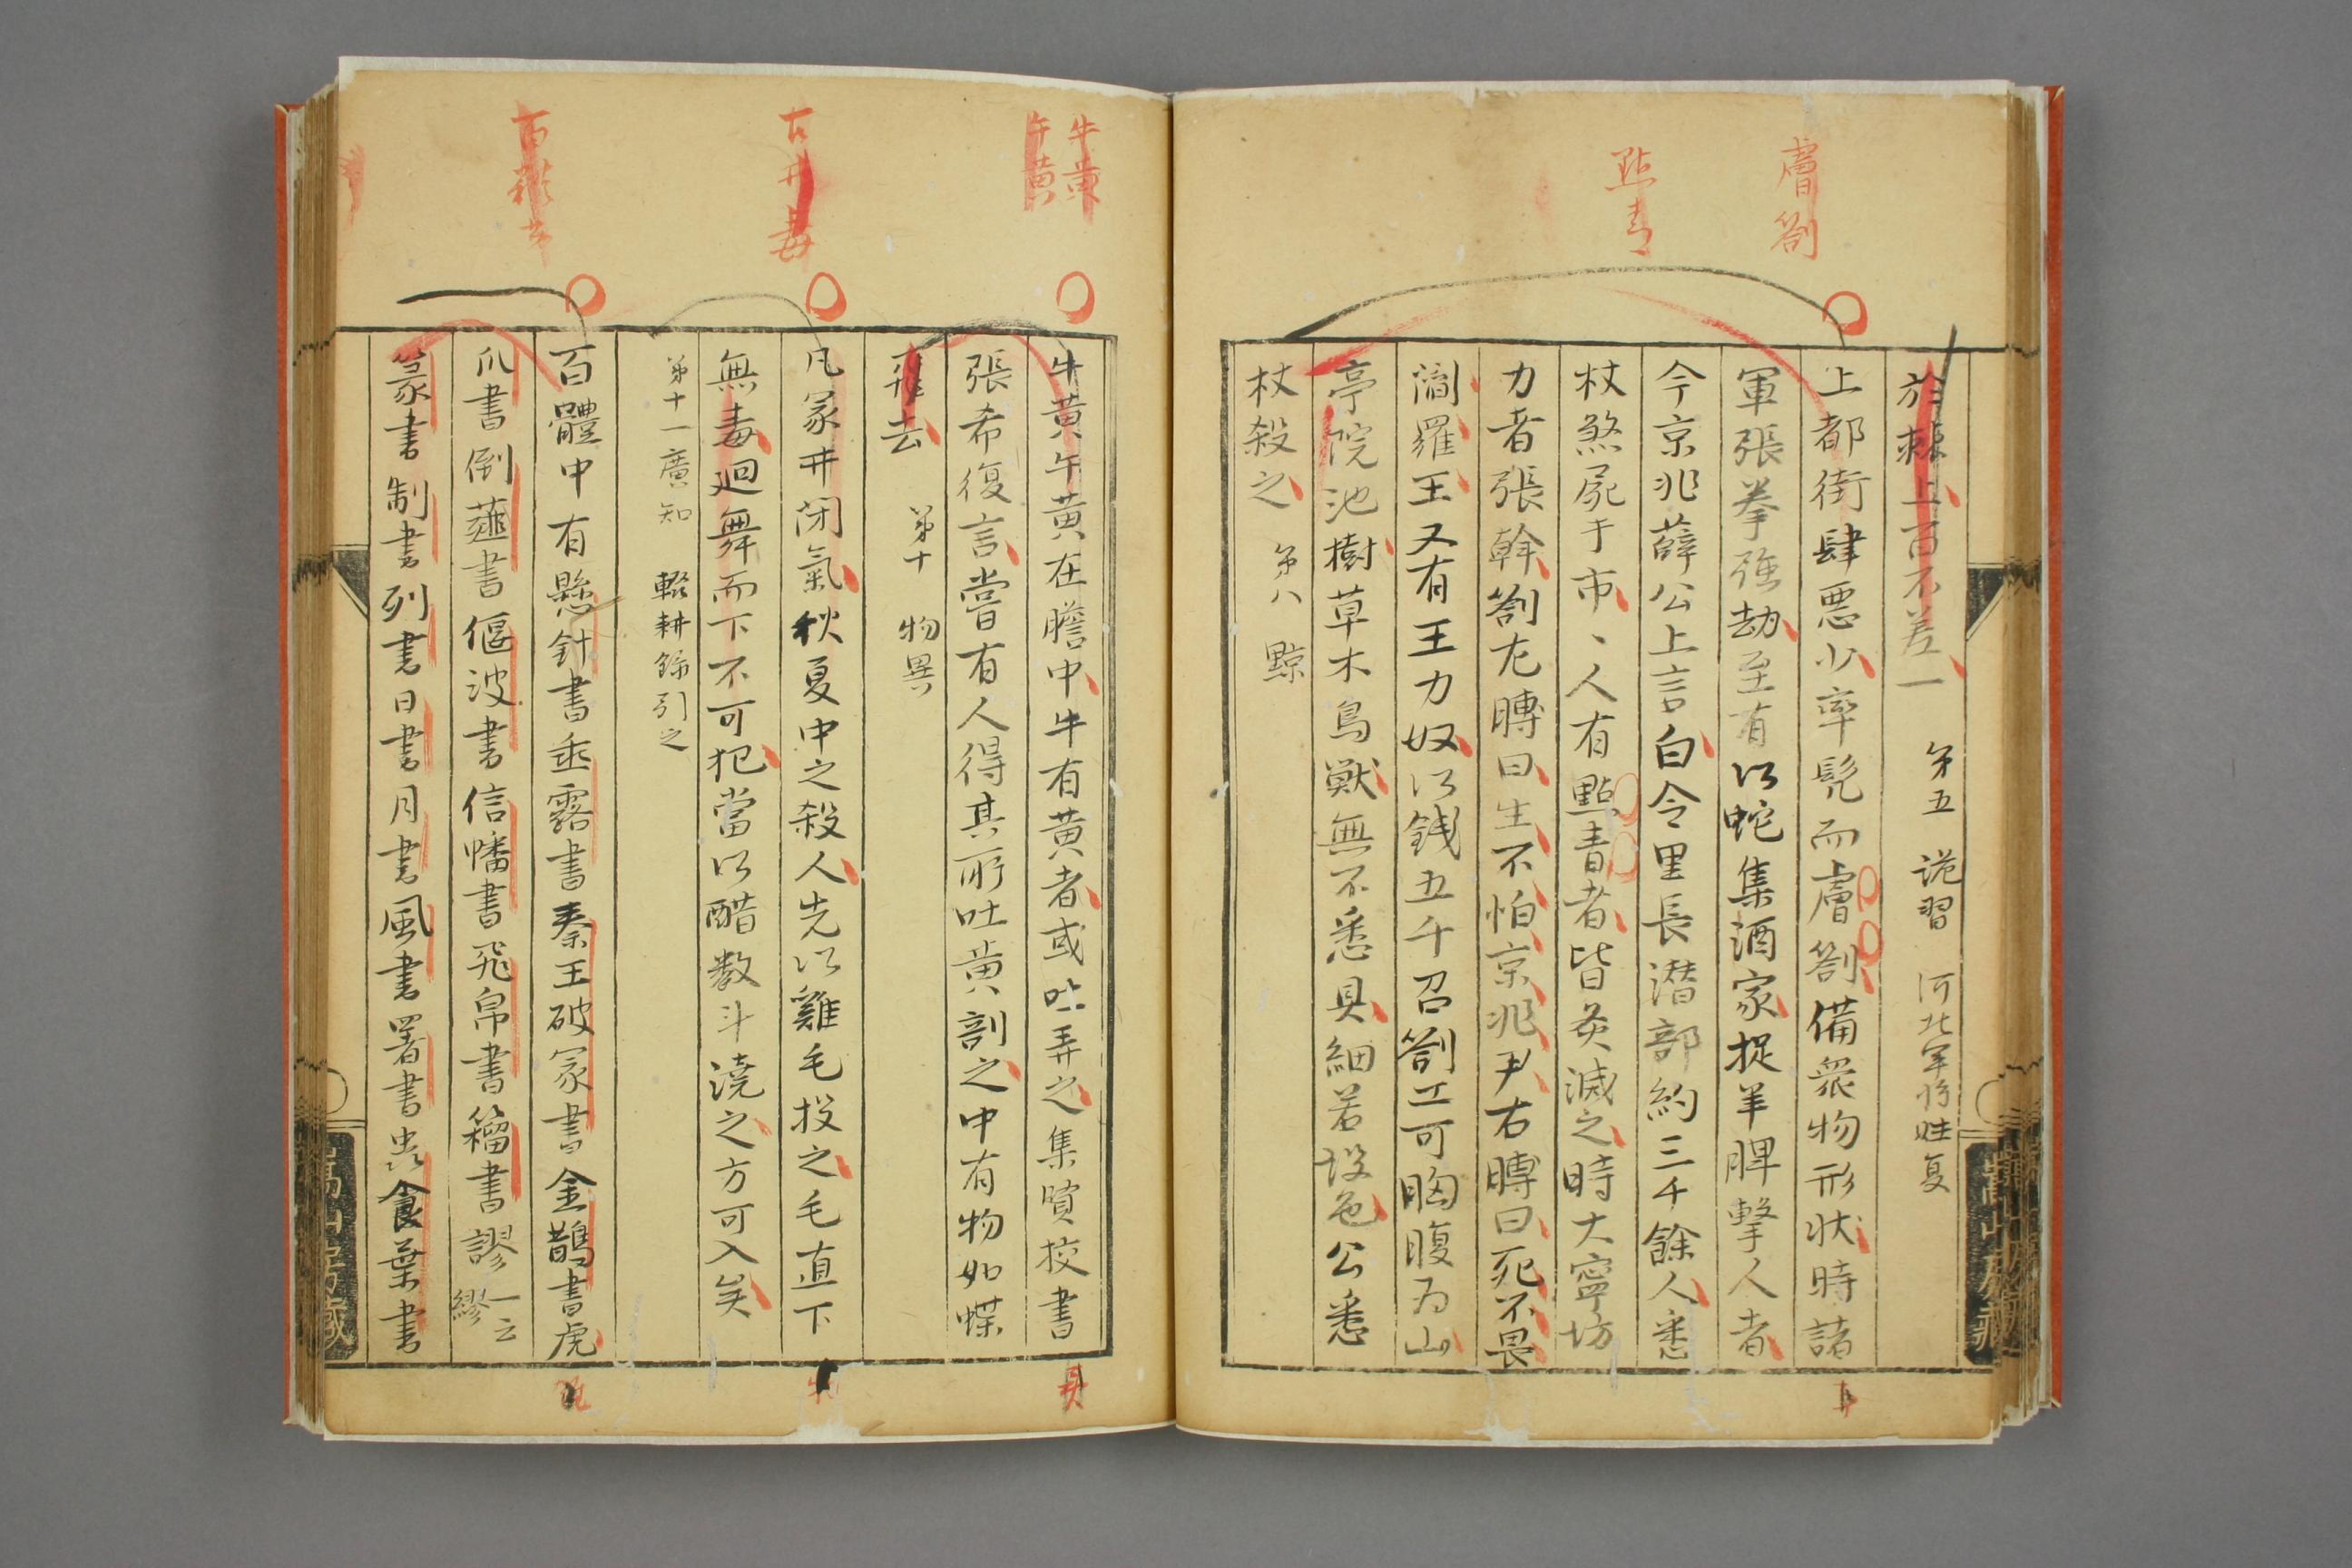 膚劄
點青
於棘上百不差一　第五　詭習　河北軍將姓夏
上都街肆惡少率髡而膚劄備衆物形狀時諸
軍張拳強劫至有以蛇集酒家捉羊脾擊人者
今京兆薛公上言白令里長潛部約三千餘人悉
杖煞屍于市、人有點青者皆炙滅之時大寧坊
力者張幹劄左膊曰生不怕京兆尹右膊曰死不畏
閻羅王又有王力奴以錢五千召劄工可胸腹為山
亭院池樹草木鳥獸無不悉具細若設色公悉
杖殺之　第八　黥
牛黃
午黃
古井毒
百體書
牛黃午黃在膽中牛有黃者或吐弄之集賢挍書
張希復言嘗有人得其所吐黃剖之中有物如蝶
飛去　第十　物異
凡冢井閉氣秋夏中之殺人先以雞毛投之毛直下
無毒迴舞而下不可犯當以醋數斗澆之方可入矣
第十一廣知　輟耕錄引之
百體中有懸針書垂露書秦王破冢書金鵲書虎
爪書倒薤書偃波書信幡書飛帛書籀書謬一云繆
篆書制書列書日書月書風書署書虫食葉書